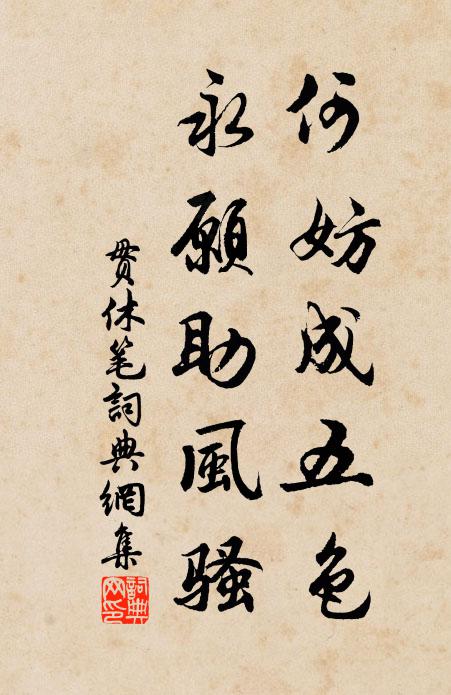 何妨成五色
永願助風騷
貫休笔詞典網集
詞典
网印